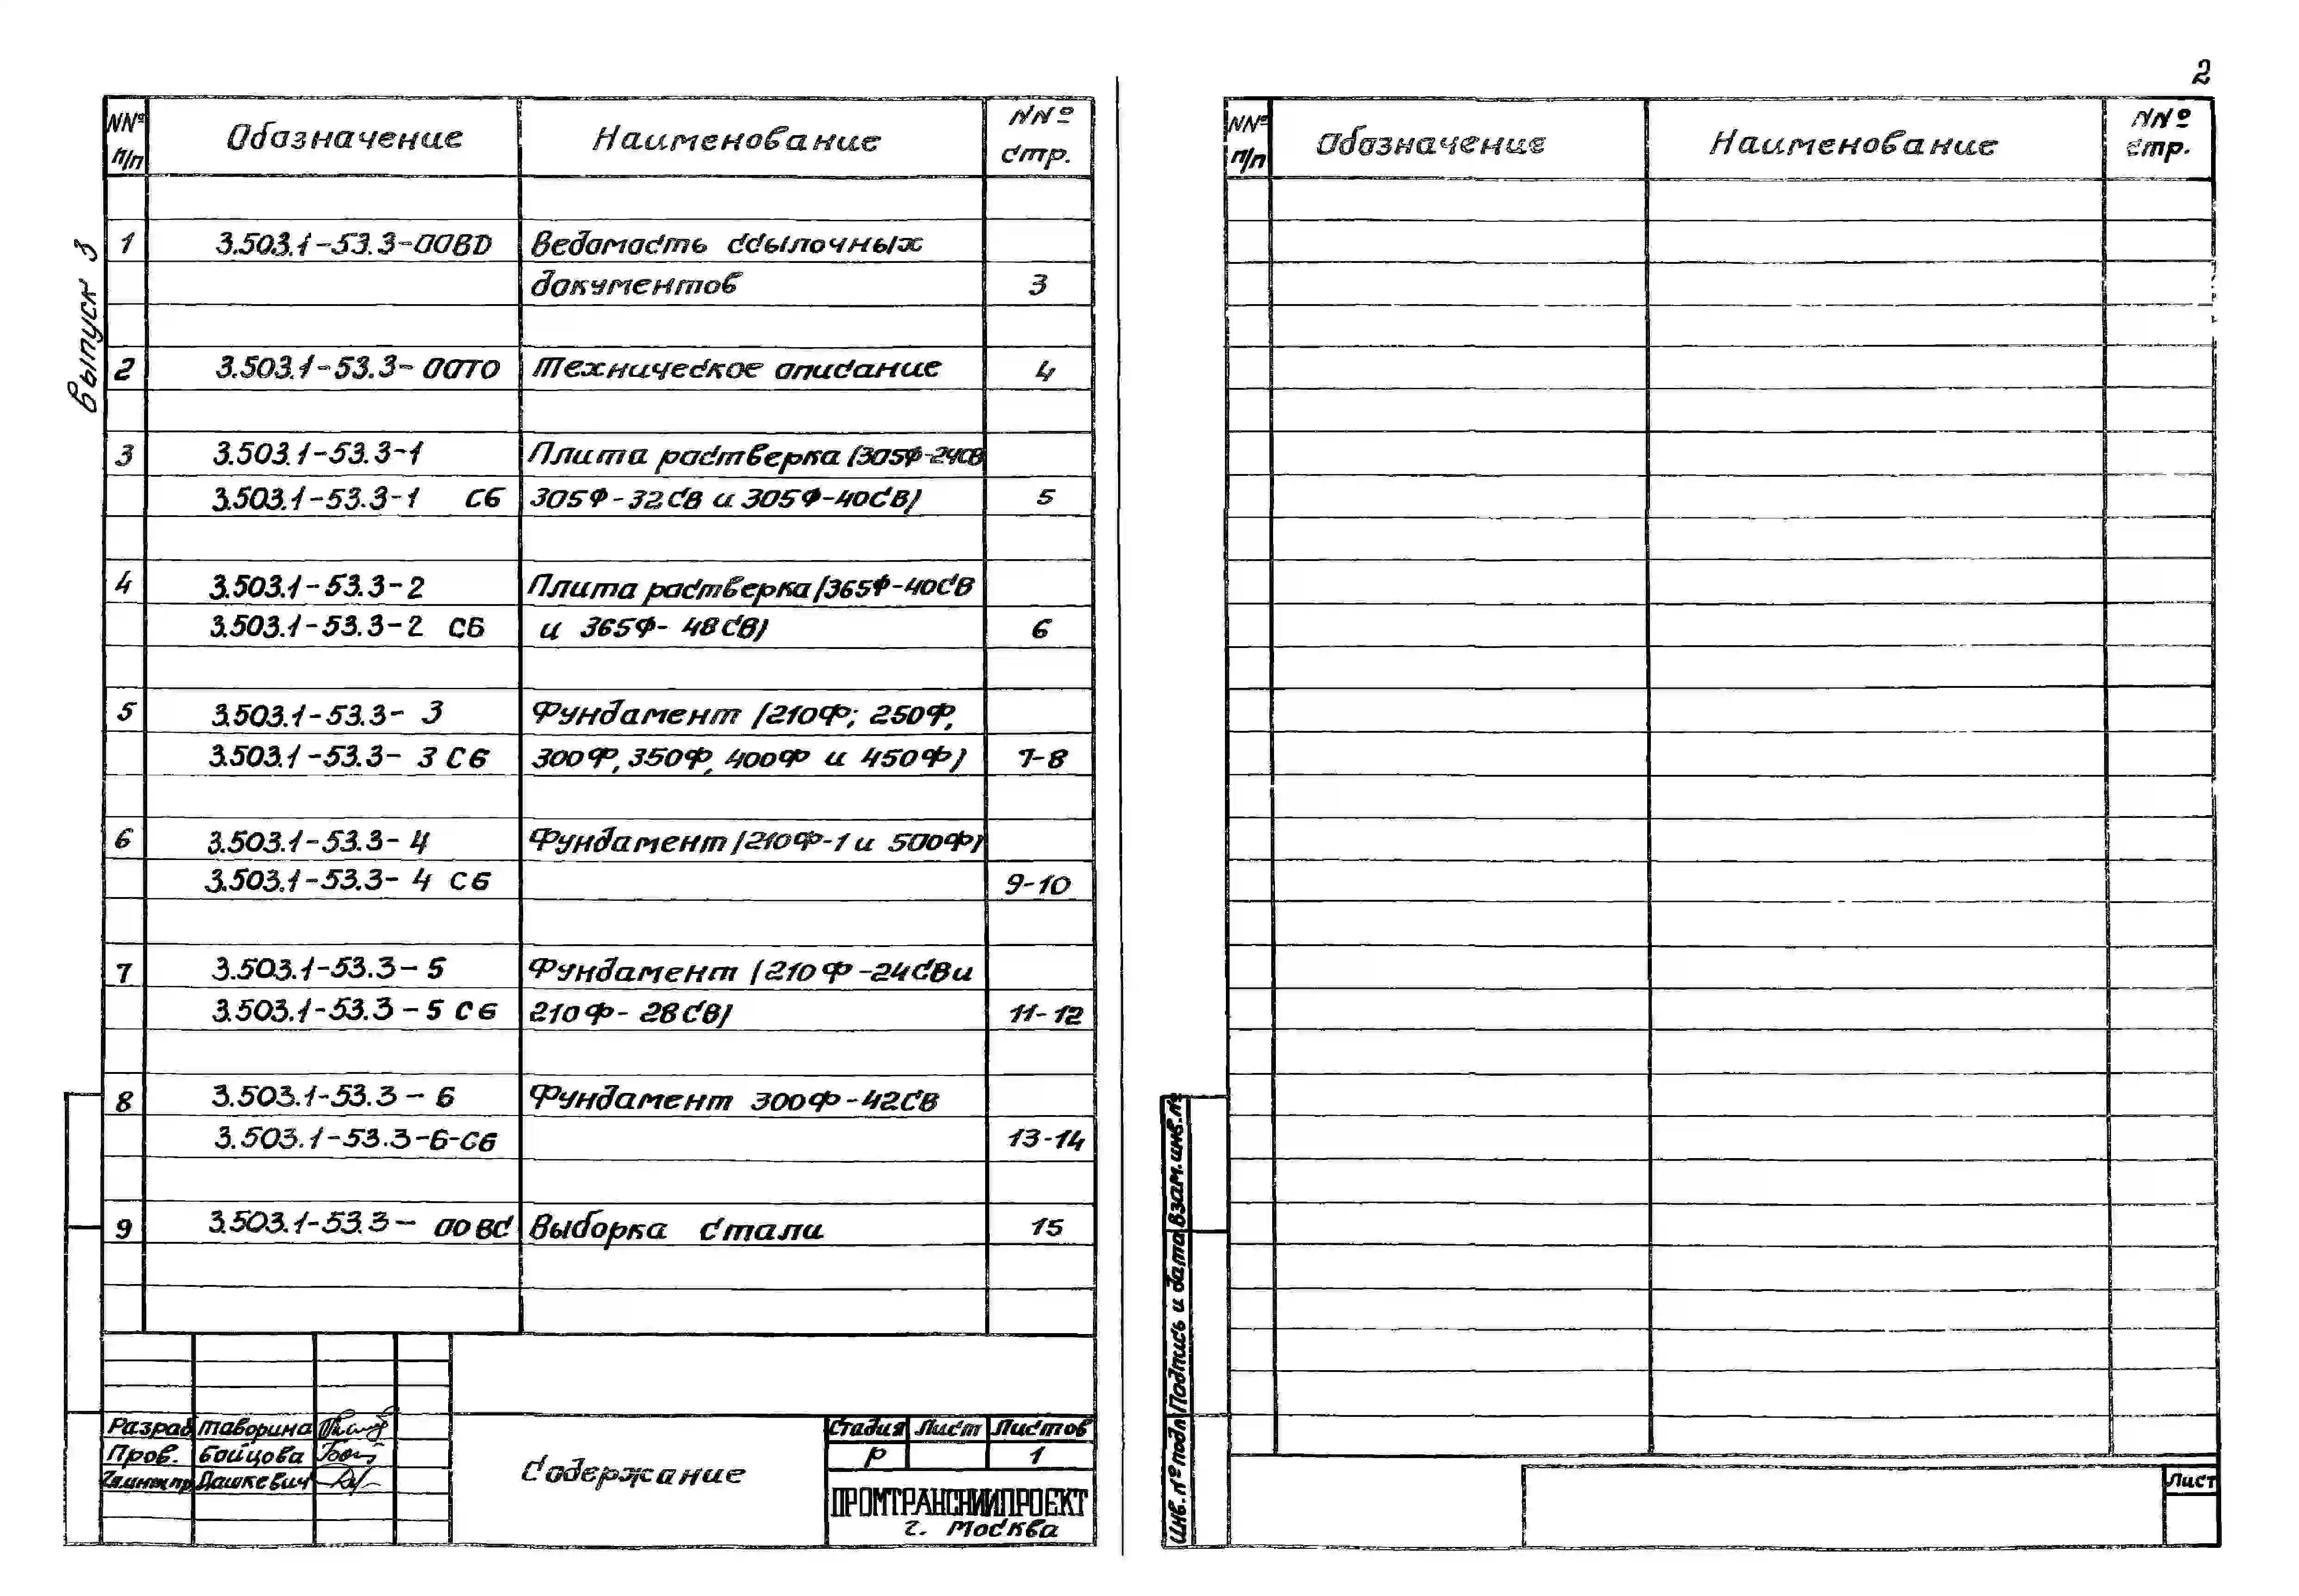 2
Выпуск 3
NNº п/п Обозначение Наименование NNº стр.
1 3.503.1-53.3-00ВД Ведомость ссылочных
документов 3
2 3.503.1-53.3-00ТО Техническое описание 4
3 3.503.1-53.3-1 Плита ростверка (305Ф-24СВ
3.503.1-53.3-1 СБ 305Ф-32СВ и 305Ф-40СВ) 5
4 3.503.1-53.3-2 Плита ростверка (365Ф-40СВ
3.503.1-53.3-2 СБ и 365Ф-48СВ) 6
5 3.503.1-53.3-3 Фундамент (210Ф; 250Ф,
3.503.1-53.3-3 СБ 300Ф, 350Ф, 400Ф и 450Ф) 7-8
6 3.503.1-53.3-4 Фундамент (210Ф-1 и 500Ф)
3.503.1-53.3-4 СБ 9-10
7 3.503.1-53.3-5 Фундамент (210Ф-24СВ и
3.503.1-53.3-5 СБ 210Ф-28СВ) 11-12
8 3.503.1-53.3-6 Фундамент 300Ф-42СВ
3.503.1-53.3-6-СБ 13-14
9 3.503.1-53.3-00ВС Выборка стали 15
Разраб Таворина
Пров. Бойцова
Гл.инж.пр. Дашкевич
Содержание
Стадия Лист Листов
Р 1
ПРОМТРАНСНИИПРОЕКТ
г. Москва
NNº п/п Обозначение Наименование NNº стр.
Инв. Nº подл Подпись и дата Взам.инв.Nº
Лист